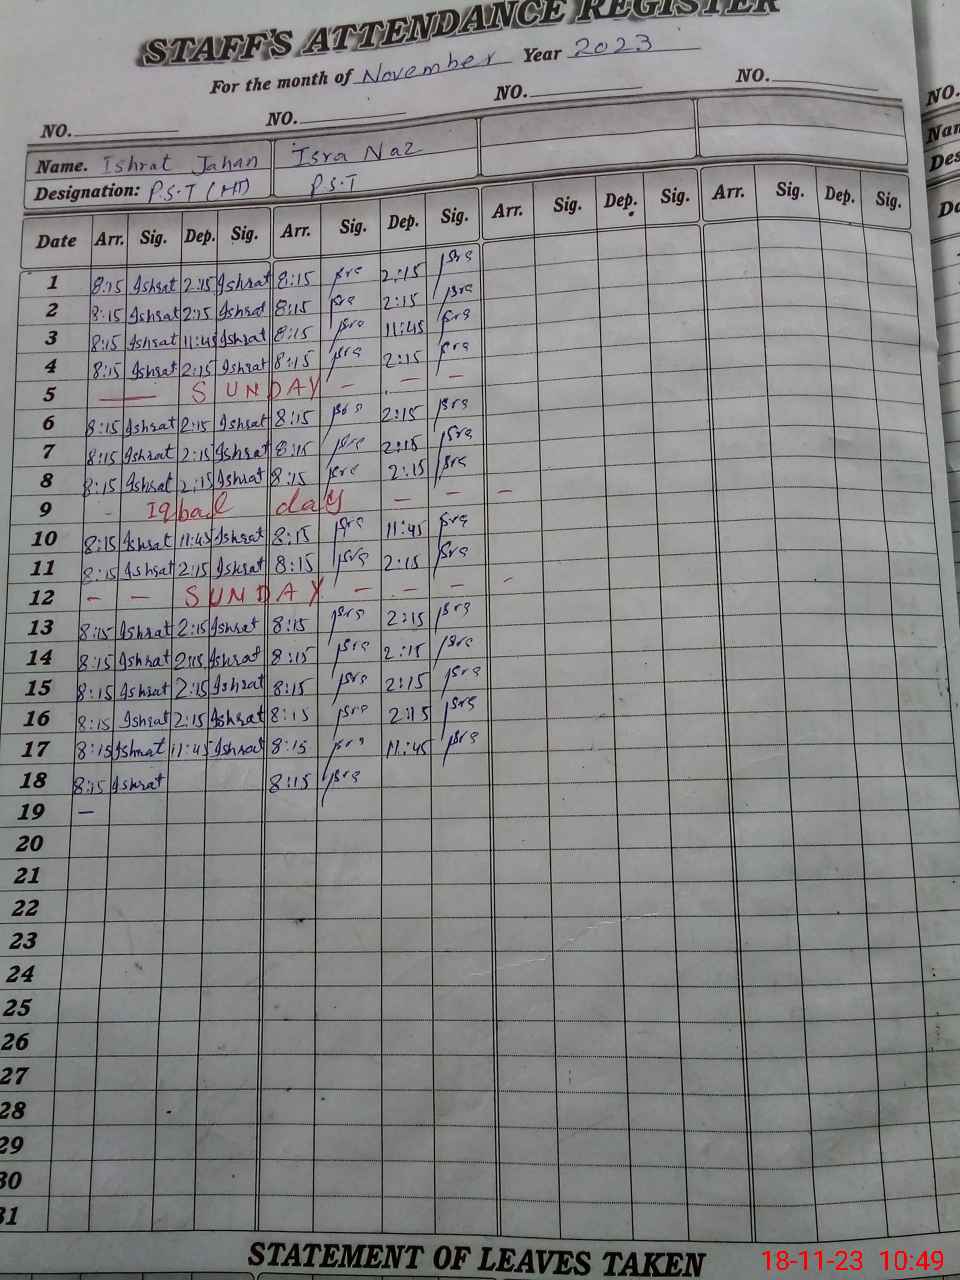 STAFF'S ATTENDANCE REGISTER
For the month of November Year 2023
NO. NO. NO. NO. NO.
Name. Ishrat Jahan Isra Naz
Designation: P.S.T (HT) P.S.T
Date Arr. Sig. Dep. Sig. Arr. Sig. Dep. Sig. Arr. Sig. Dep. Sig. Arr. Sig. Dep. Sig.
1 8:15 Ishrat 2:15 Ishrat 8:15 Isra 2:15 Isra
2 8:15 Ishrat 2:15 Ishrat 8:15 Isra 2:15 Isra
3 8:15 Ishrat 11:45 Ishrat 8:15 Isra 11:45 Isra
4 8:15 Ishrat 2:15 Ishrat 8:15 Isra 2:15 Isra
5 — SUNDAY - - -
6 8:15 Ishrat 2:15 Ishrat 8:15 Isra 2:15 Isra
7 8:15 Ishrat 2:15 Ishrat 8:15 Isra 2:15 Isra
8 8:15 Ishrat 2:15 Ishrat 8:15 Isra 2:15 Isra
9 - Iqbal day - - -
10 8:15 Ishrat 11:45 Ishrat 8:15 Isra 11:45 Isra
11 8:15 Ishrat 2:15 Ishrat 8:15 Isra 2:15 Isra
12 - - SUNDAY - - - -
13 8:15 Ishrat 2:15 Ishrat 8:15 Isra 2:15 Isra
14 8:15 Ishrat 2:15 Ishrat 8:15 Isra 2:15 Isra
15 8:15 Ishrat 2:15 Ishrat 8:15 Isra 2:15 Isra
16 8:15 Ishrat 2:15 Ishrat 8:15 Isra 2:15 Isra
17 8:15 Ishrat 11:45 Ishrat 8:15 Isra 11:45 Isra
18 8:15 Ishrat 8:15 Isra
19 —
20
21
22
23
24
25
26
27
28
29
30
31
STATEMENT OF LEAVES TAKEN
18-11-23 10:49